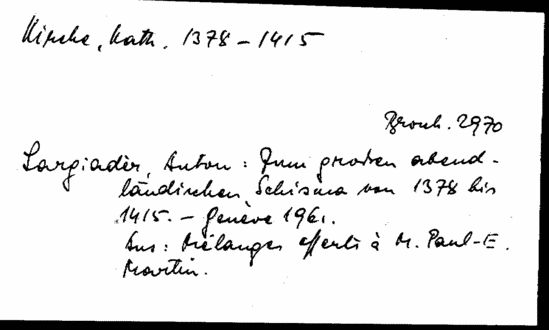 Kirche, kath. 1378 – 1415
Brosch. 2970
Largiadèr, Anton: Zum grossen abend-
ländischen Schisma von 1378 bis
1415. – Genève 1961.
Aus: Mélanges offerts à M. Paul-E.
Martin.